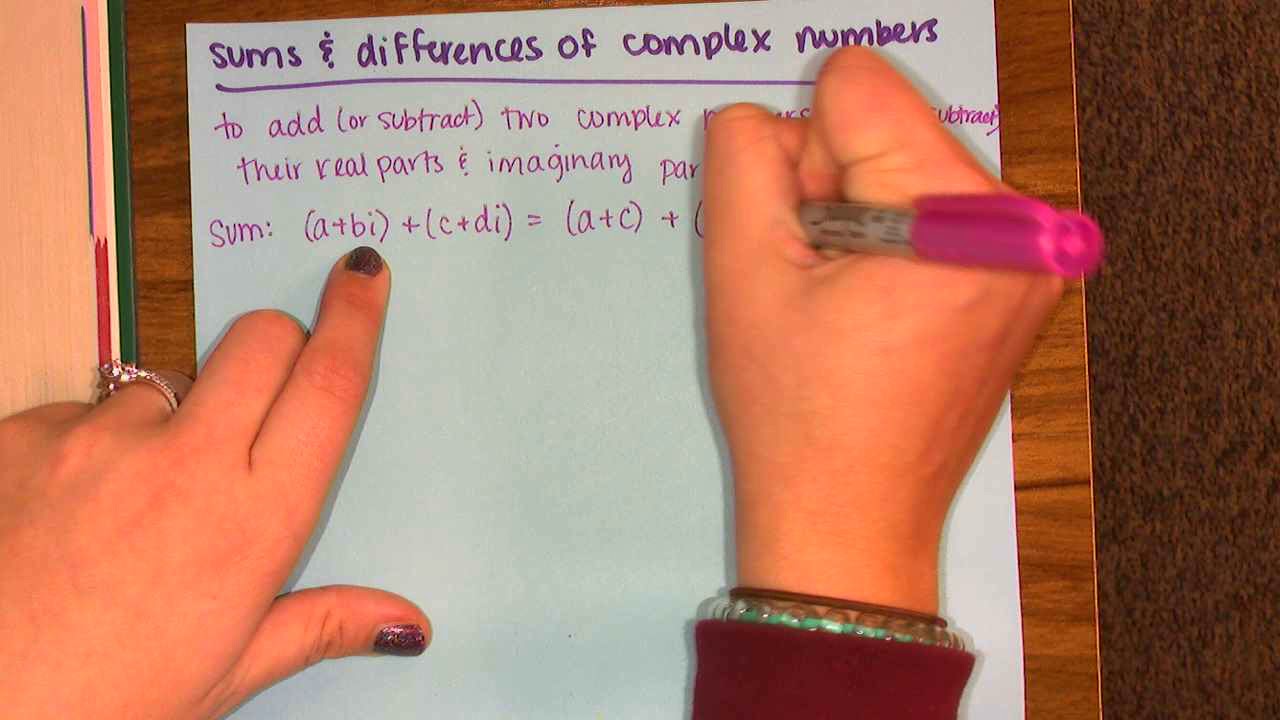 sums & differences of complex numbers
to add (or subtract) two complex subtract)
their real parts & imaginary
Sum: (a+bi) + (c+di) = (a+c) + (